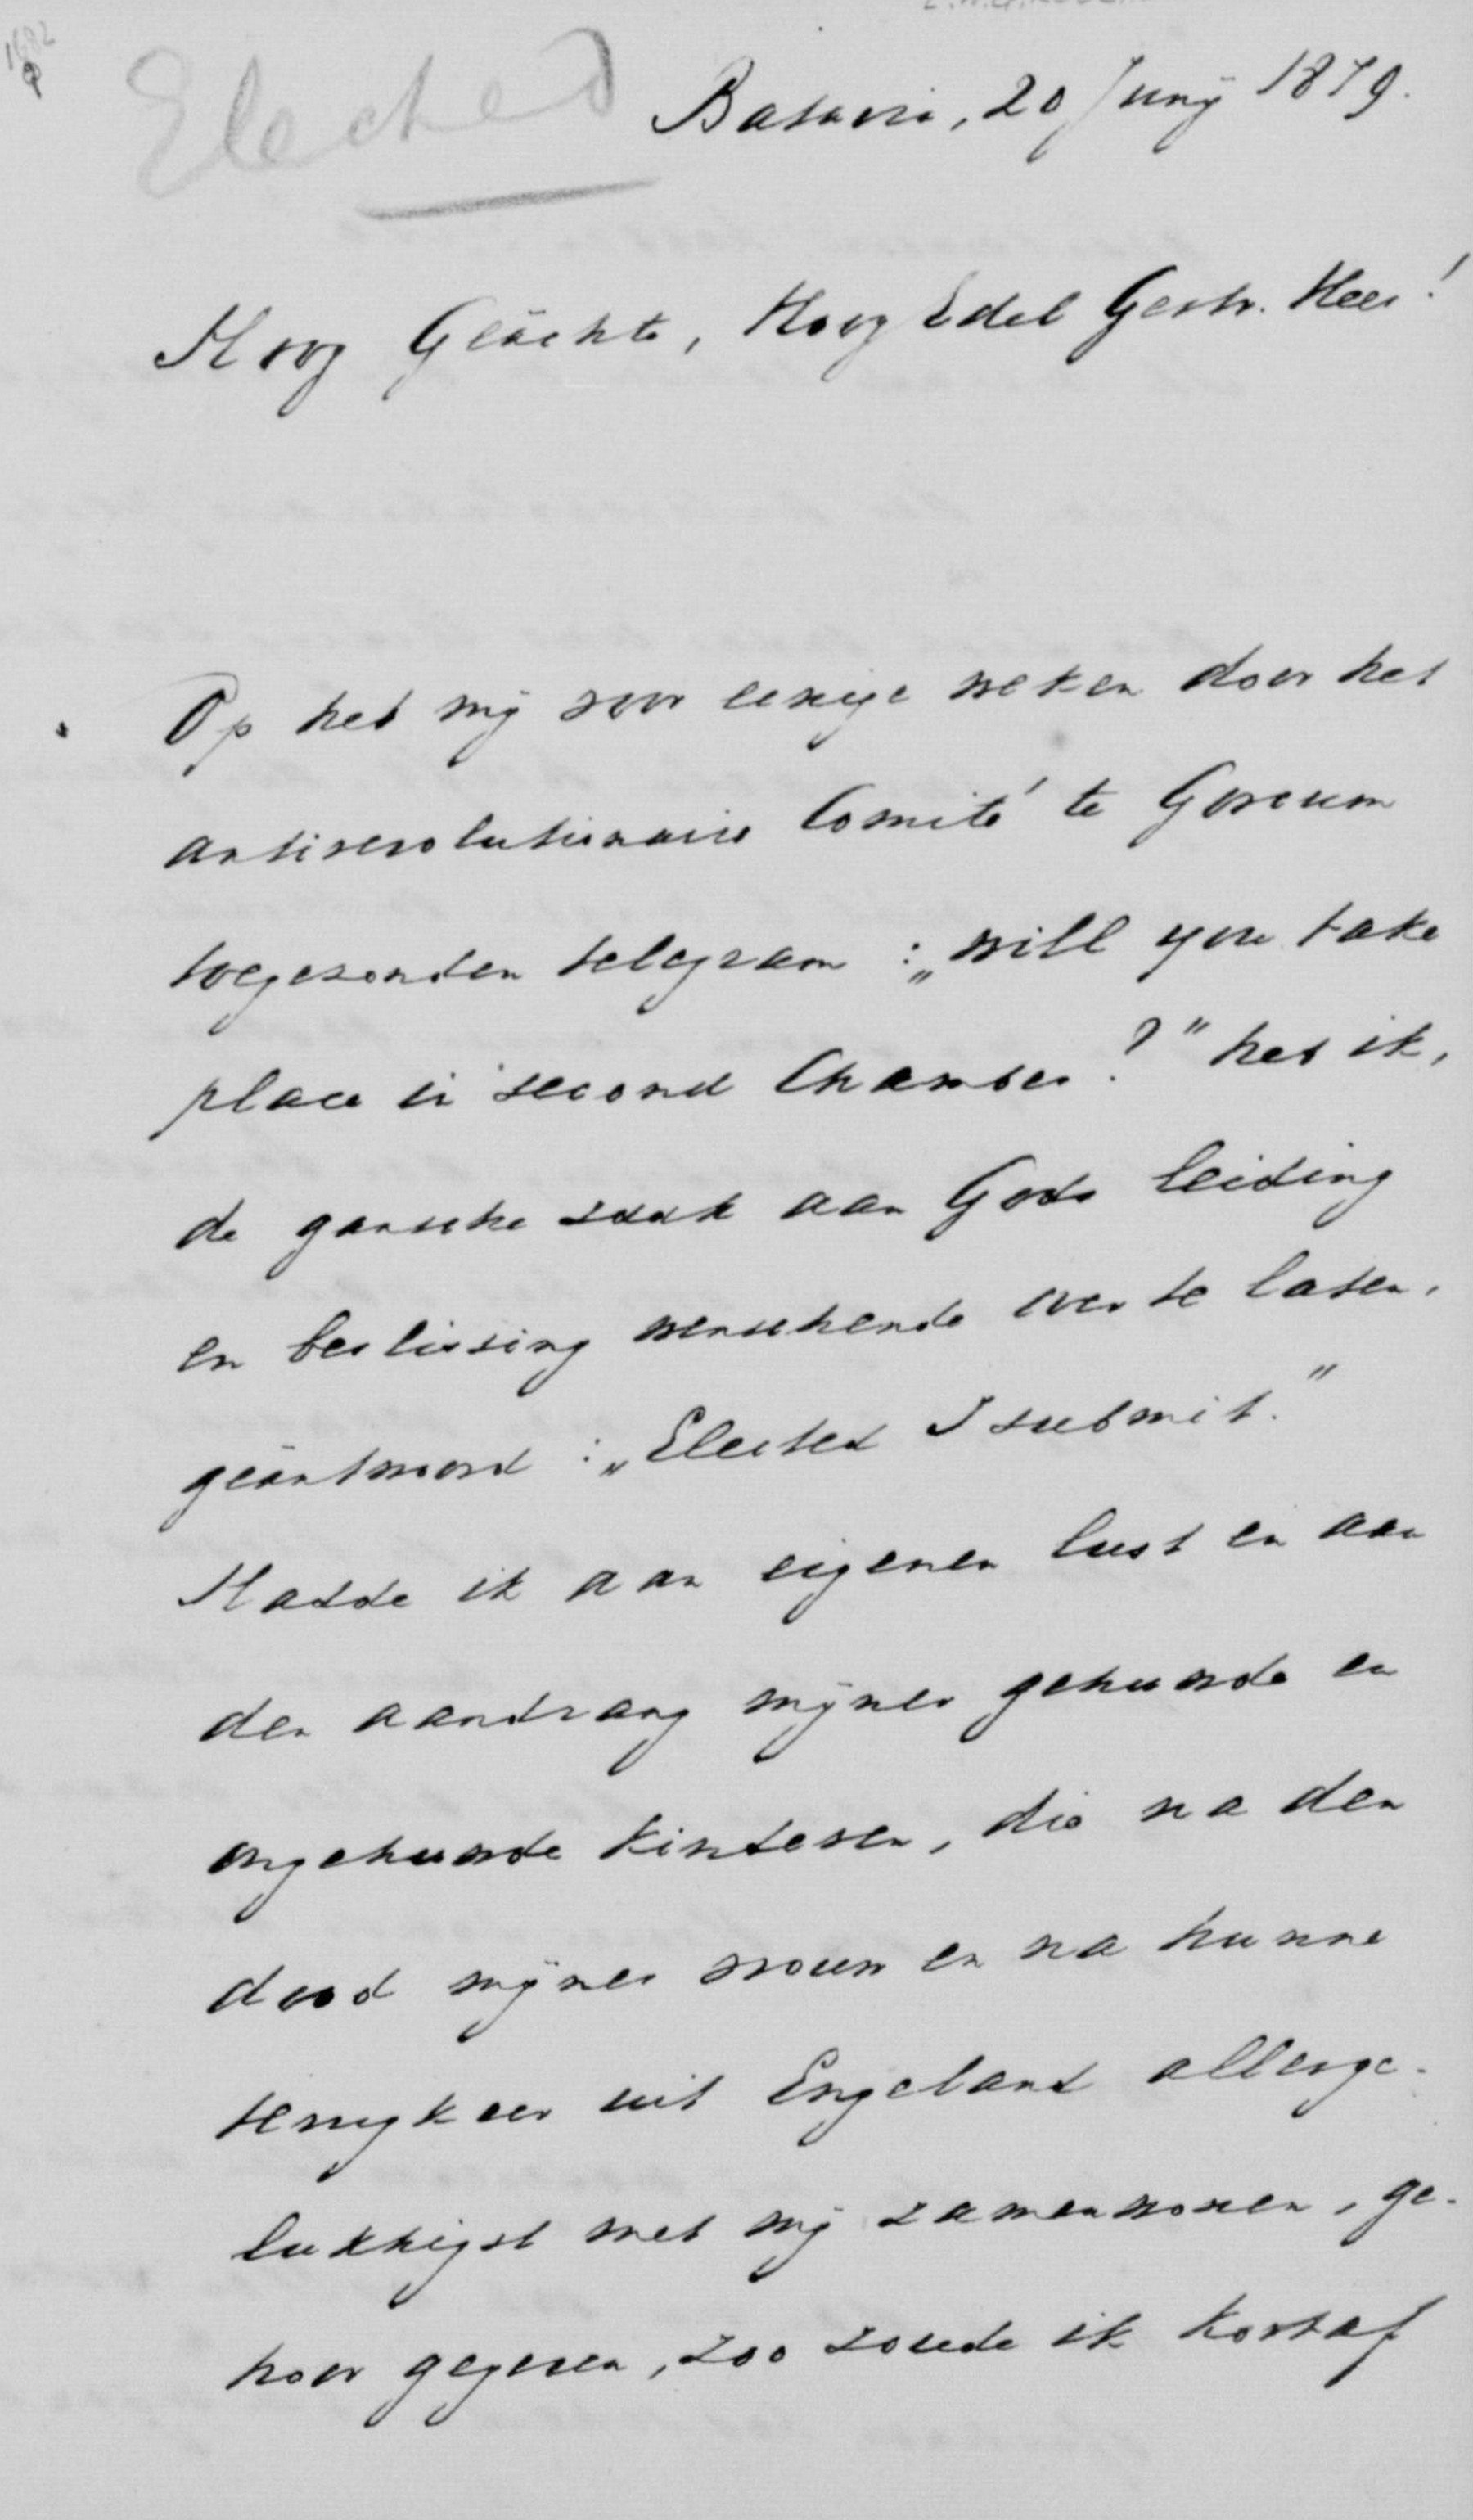 1682
Elected
Batavia, 20 Juny 1879.
Hoog Geächte, Hoog Edel Gestr. Heer!
Op het mij voor eenige weken door het
antirevolutionaire Comité te Gorcum
toegezonden telegram: „will you take
place in second Chamber?" heb ik,
de gansche zaak aan Gods leiding
en beslissing wenschende over te laten,
geäntwoord: „Elected I submit."
Hadde ik aan eigenen lust en aan
den aandrang mijner gehuwde en
ongehuwde kinderen, die na den
dood mijner vrouw en na hunne
terugkeer uit Engeland allerge-
lukkigst met mij zamenwonen, ge-
hoor gegeven, zoo zoude ik kortaf